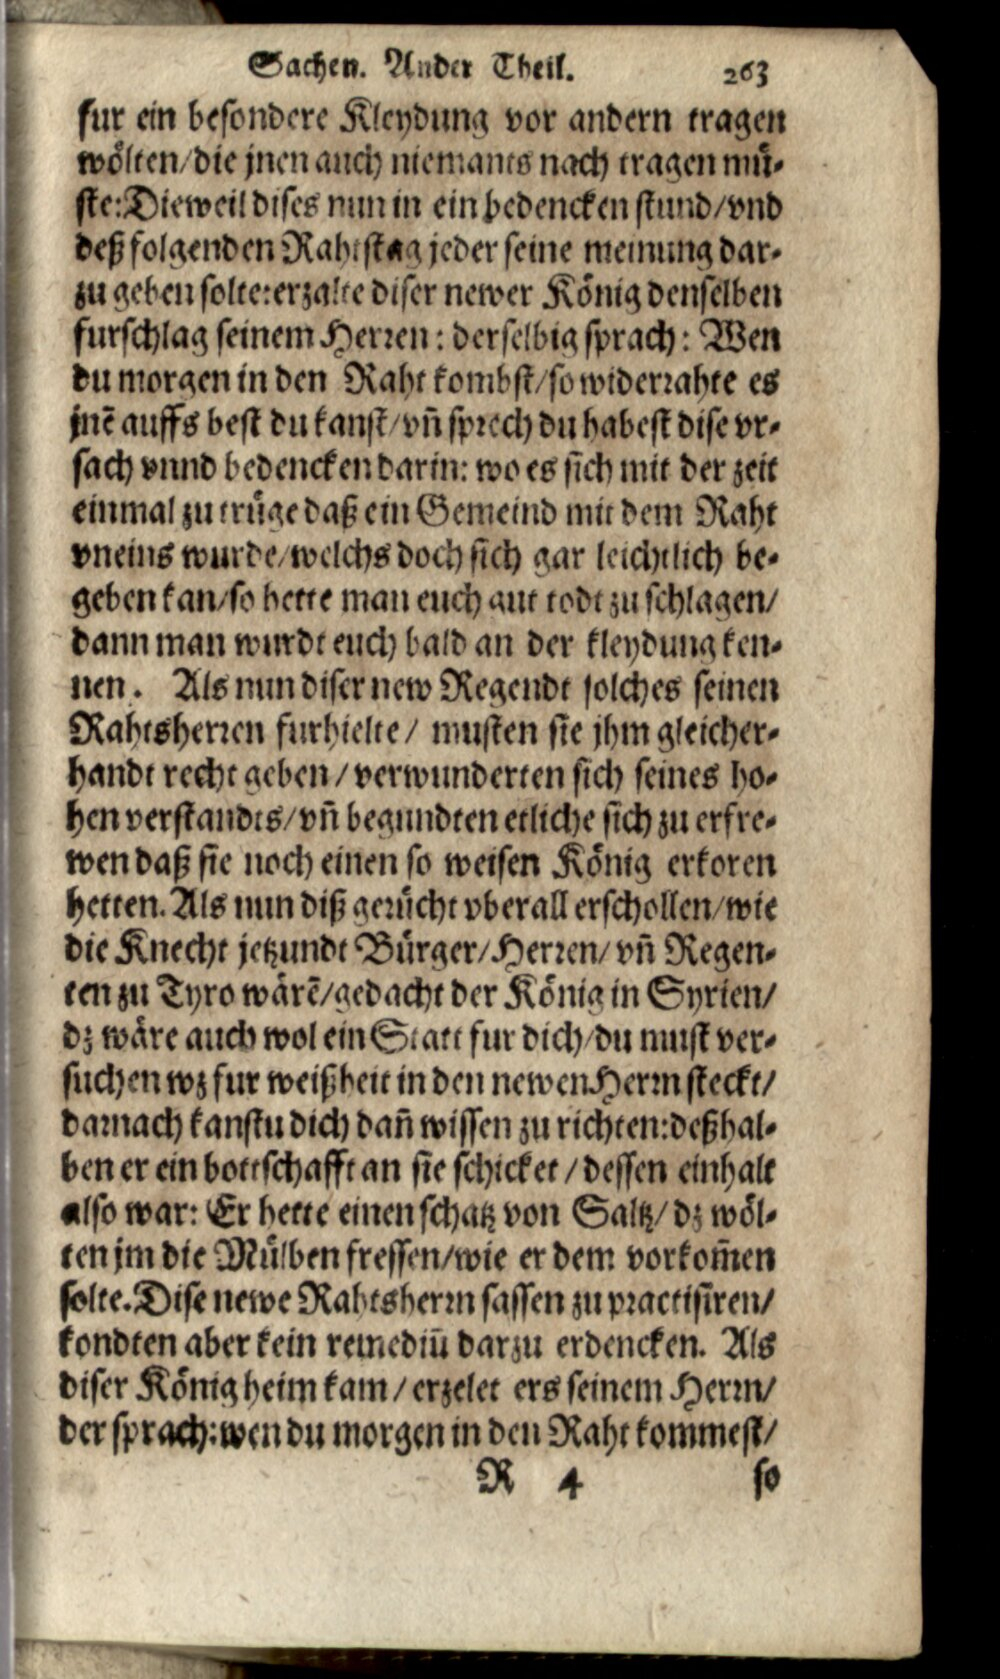 Sachen. Ander Theil. 263
fur ein besondere Kleydung vor andern tragen
wölten/die jnen auch niemants nach tragen mü-
ste: Dieweil dises nun in ein bedencken stund/vnd
deß folgenden Rahtstag jeder seine meinung dar-
zu geben solte: erzalte diser newer König denselben
furschlag seinem Herren: derselbig sprach: Wen
du morgen in den Raht kombst/so widerrahte es
jnē auffs best du kanst/vn̄ sprech du habest dise vr-
sach vnnd bedencken darin: wo es sich mit der zeit
einmal zu trüge daß ein Gemeind mit dem Raht
vneins wurde/welchs doch sich gar leichtlich be-
geben kan/so hette man euch gut todt zu schlagen/
dann man wurdt euch bald an der kleydung ken-
nen. Als nun diser new Regendt solches seinen
Rahtsherren furhielte/ musten sie jhm gleicher-
handt recht geben/verwunderten sich seines ho-
hen verstandts/vn̄ begundten etliche sich zu erfre-
wen daß sie noch einen so weisen König erkoren
hetten. Als nun diß gerücht vberall erschollen/wie
die Knecht jetzundt Bürger/Herren/vn̄ Regen-
ten zu Tyro wärē/gedacht der König in Syrien/
dz wäre auch wol ein Statt fur dich/du must ver-
suchen wz fur weißheit in den newen Herrn steckt/
darnach kanstu dich dan̄ wissen zu richten: deßhal-
ben er ein bottschafft an sie schicket/dessen einhalt
also war: Er hette einen schatz von Saltz/dz wöl-
ten jm die Mülben fressen/wie er dem vorkom̄en
solte. Dise newe Rahtsherrn sassen zu practisiren/
kondten aber kein remediū darzu erdencken. Als
diser König heim kam/erzelet ers seinem Herrn/
der sprach: wen du morgen in den Raht kommest/
R 4 so